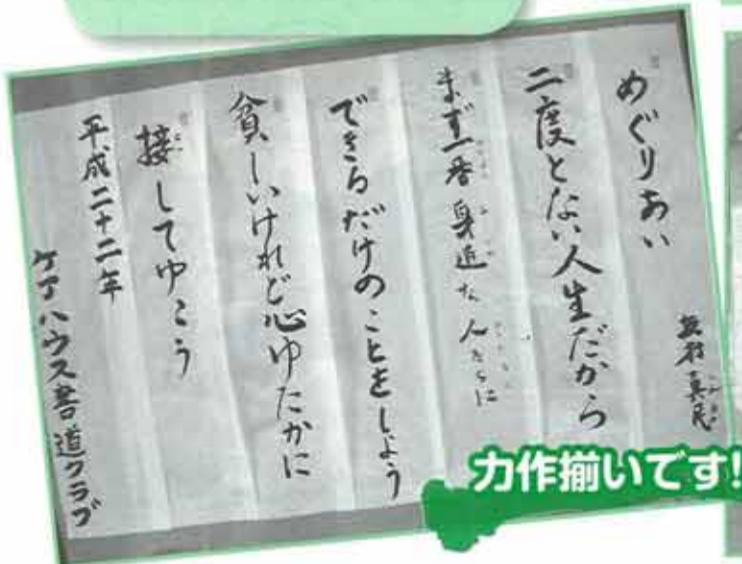 めぐりあい
坂村真民
二度とない人生だから
まず一番身近な人たちに
できるだけのことをしよう
貧しいけれど心ゆたかに
接してゆこう
平成二十二年
ケアハウス書道クラブ
力作揃いです!